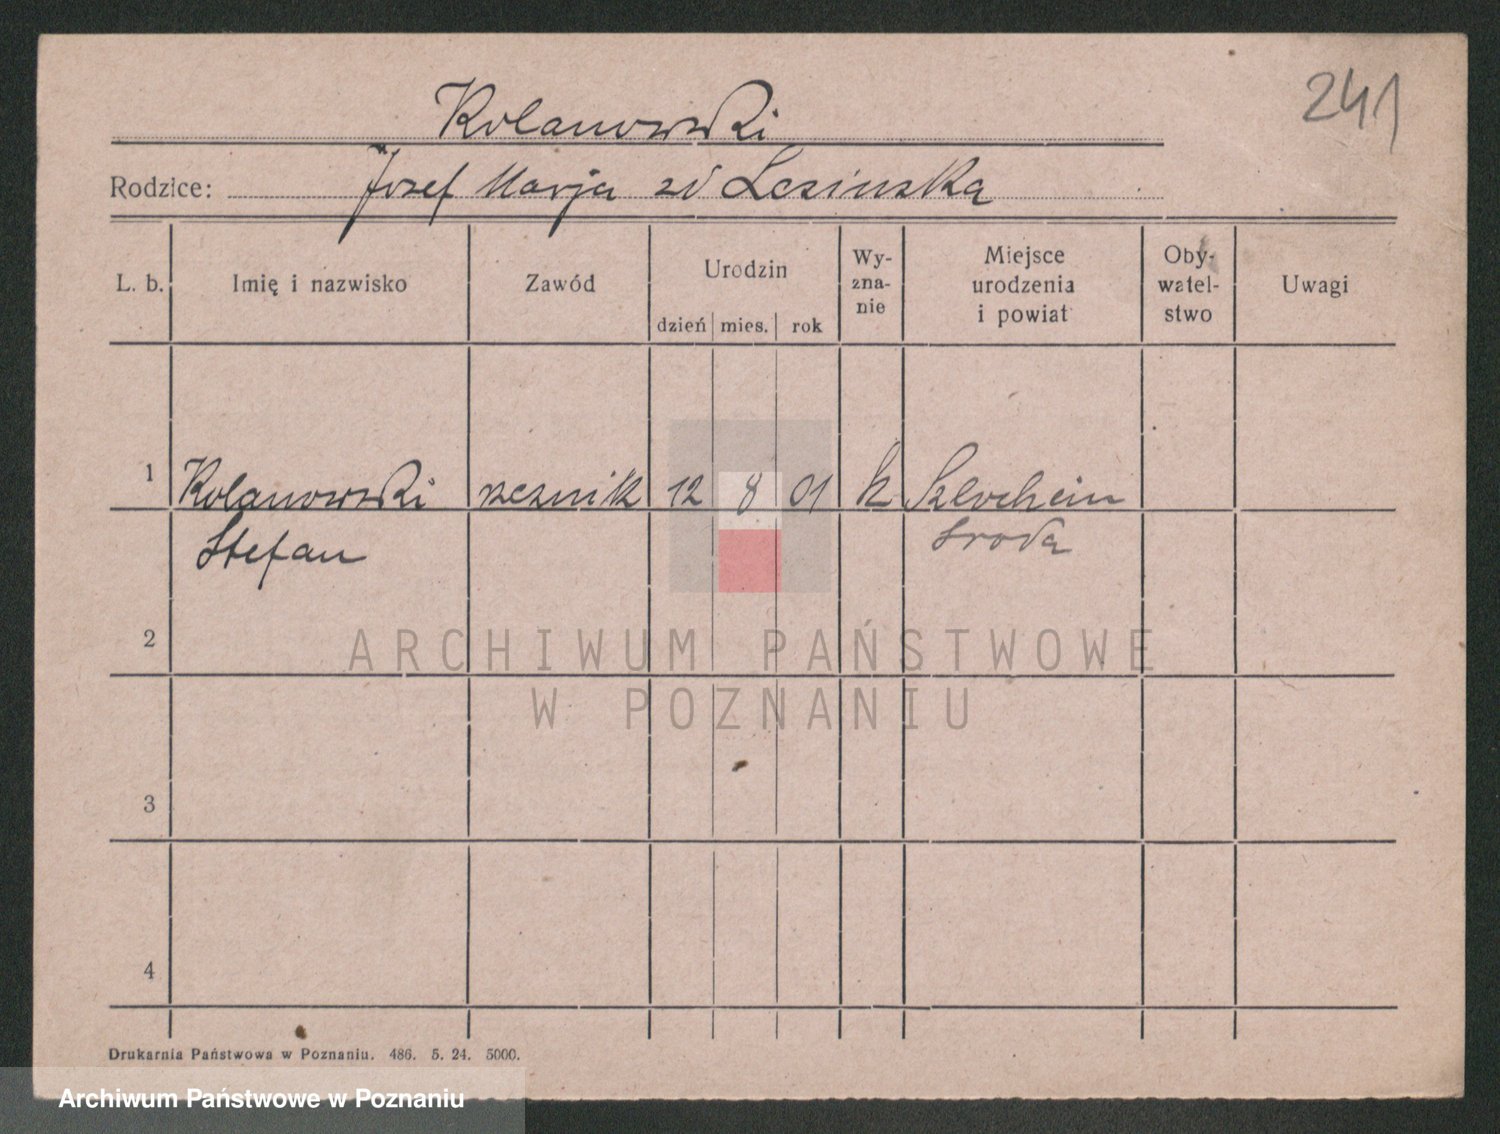 241
Kolanowski
Rodzice: Josef Marja zd Lesinska
L. b. Imię i nazwisko Zawód Urodzin dzień mies. rok Wy-zna-nie Miejsce urodzenia i powiat Oby-watel-stwo Uwagi
1 Kolanowski rzeznik 12 8 01 k
Stefan Sroda
2
ARCHIWUM PAŃSTWOWE
W POZNANIU
3
4
Drukarnia Państwowa w Poznaniu. 486. 5. 24. 5000.
Archiwum Państwowe w Poznaniu